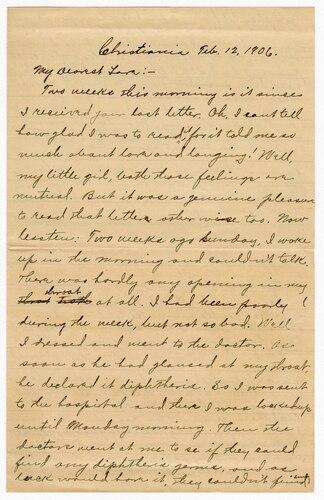 Christiania Feb. 12, 1906.
My Dearest Lara:-
Two weeks this morning is it since
I recieved your last letter. Oh, I cant tell
how glad I was to read it, for it told me so
much about love and longing! Well,
my little girl, both those feelings are
mutual. But it was a genuine pleasure
to read that letter other wise too. Now
lessten: Two weeks ago Sunday, I woke
up in the morning and couldn't talk.
There was hardly any opening in my
throat at all. I had been poorly
during the week, but not so bad. Well
I dressed and went to the doctor. As
soon as he had glansed at my throat,
he declared it diphtheris. So I was sent
to the hospital and there I was locked up
until Monday morning. Then the
doctors went at me to see if they could
find any diphtheris germs, and as
luck would have it, they couldn't find any